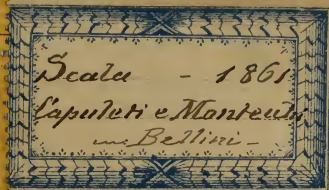 Scala - 1861
Capuleti e Montecchi
Bellini -